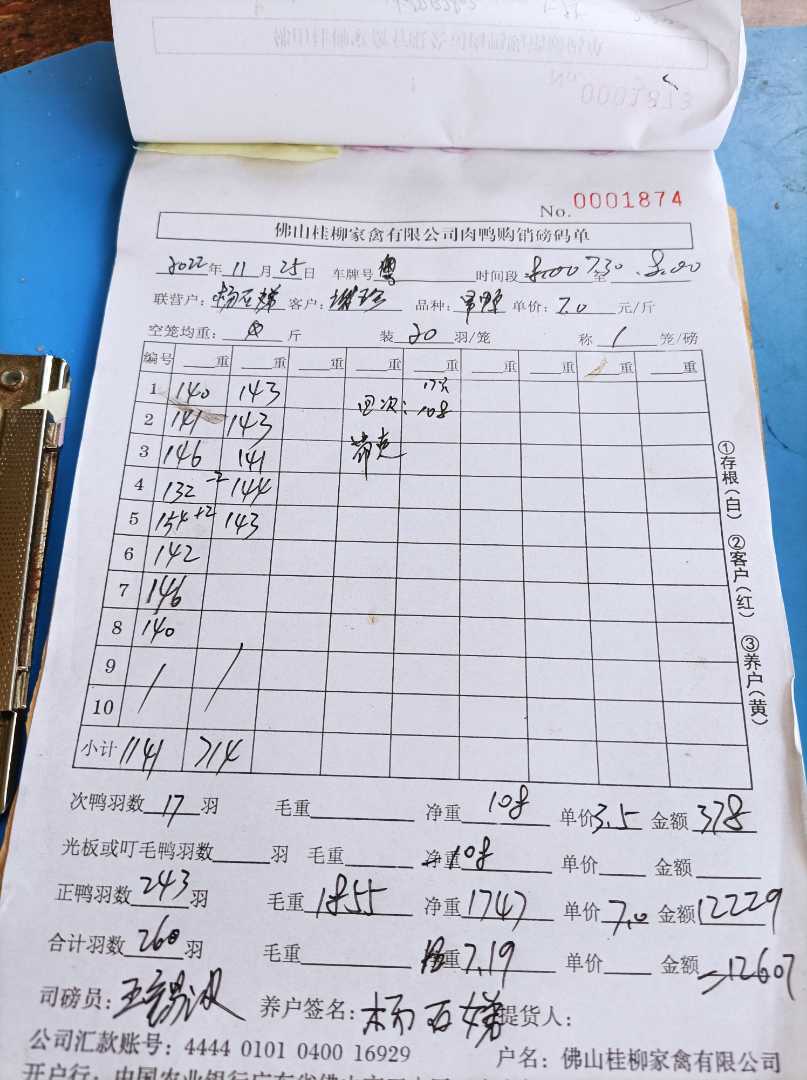 No. 0001874
佛山桂柳家禽有限公司肉鸭购销磅码单
2022年 11月 25日 车牌号 粤 时间段 8:00 7:30 至 8:00
联营户: 杨 客户: 品种: 单价: 7.0 元/斤
空笼均重: 斤 装 20 羽/笼 称 1 笼/磅
编号 重 重 重 重 重 重 重 重
1 140 143 17只
2 141 143 次: 108
3 146 141
4 132 -2 144
5 154 +2 143
6 142
7 146
8 140
9
10
小计 1141 714
①存根(白) ②客户(红) ③养户(黄)
次鸭羽数 17 羽 毛重 净重 108 单价 3.5 金额 378
光板或叮毛鸭羽数 羽 毛重 净重 108 单价 金额
正鸭羽数 243 羽 毛重 1855 净重 1747 单价 7.0 金额 12229
合计羽数 260 羽 毛重 重 7.19 单价 金额 12607
司磅员: 王 养户签名: 杨 提货人:
公司汇款账号: 4444 0101 0400 16929 户名: 佛山桂柳家禽有限公司
开户行: 中国农业银行广东省佛山市